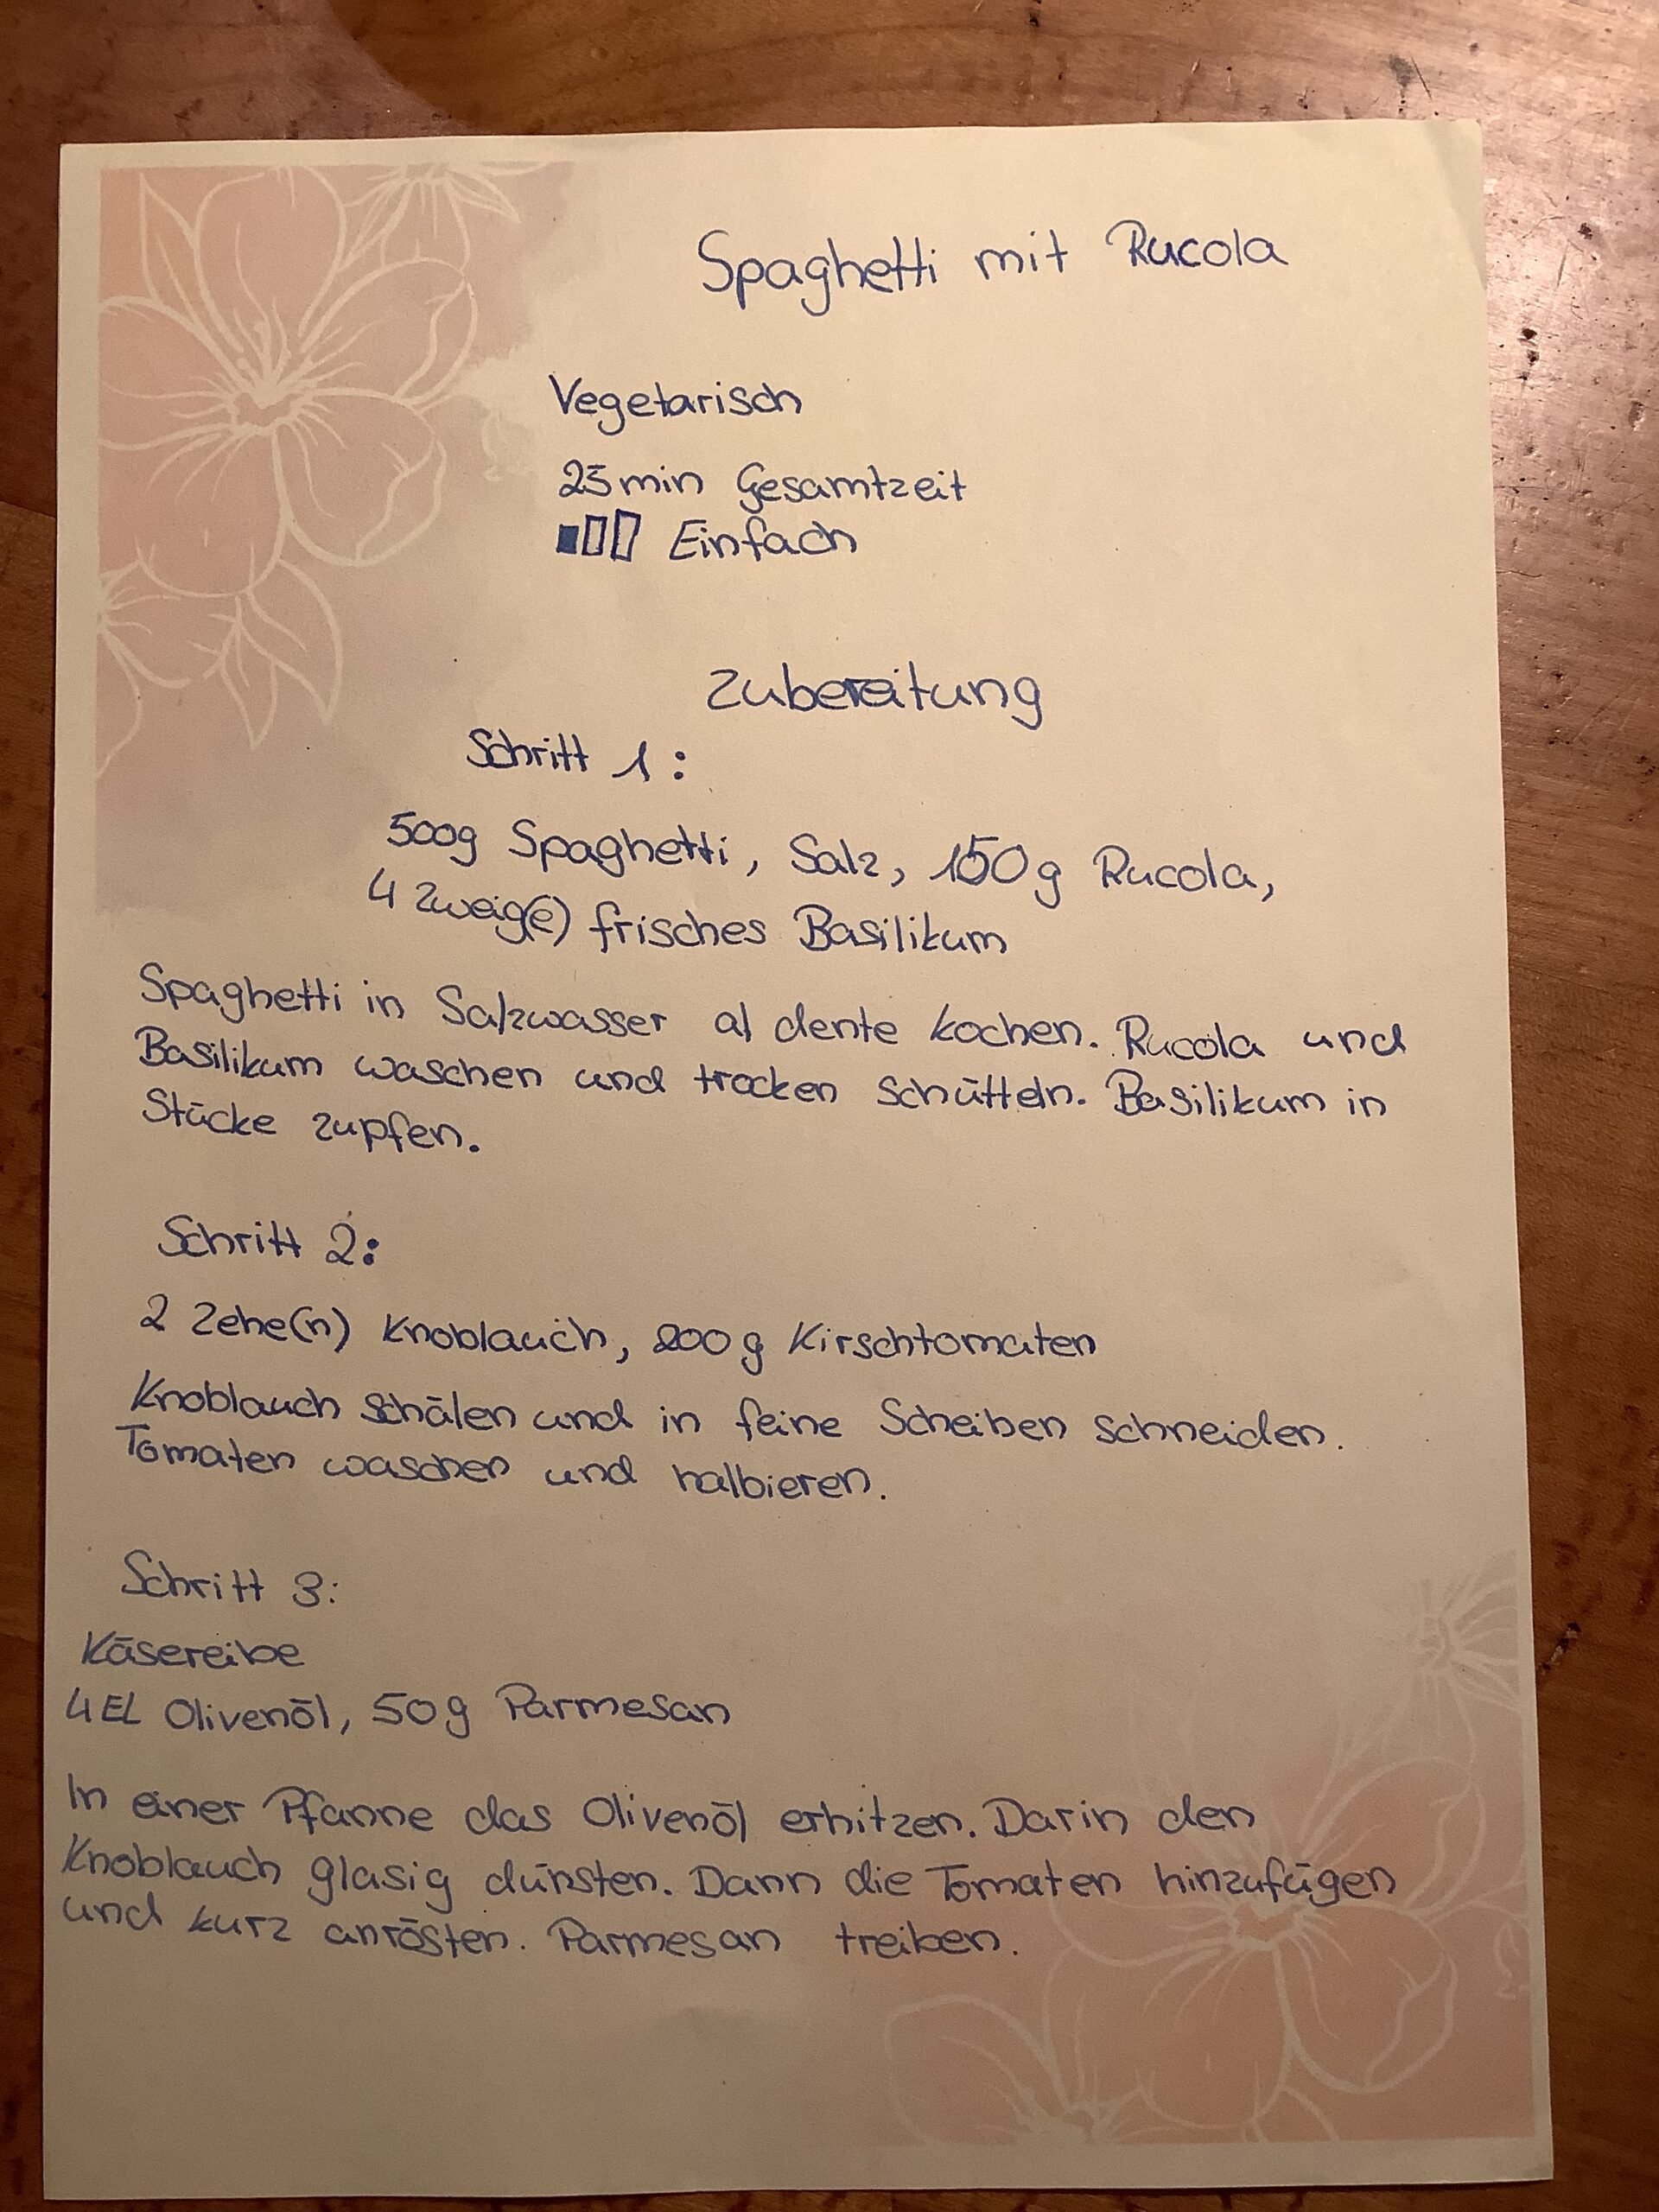 Spaghetti mit Rucola
Vegetarisch
25min Gesamtzeit
Einfach
Zubereitung
Schritt 1:
500g Spaghetti, Salz, 150g Rucola,
4 Zweig(e) frisches Basilikum
Spaghetti in Salzwasser al dente kochen. Rucola und
Basilikum waschen und trocken schütteln. Basilikum in
Stücke zupfen.
Schritt 2:
2 Zehe(n) Knoblauch, 200g Kirschtomaten
Knoblauch schälen und in feine Scheiben schneiden.
Tomaten waschen und halbieren.
Schritt 3:
Käsereibe
4EL Olivenöl, 50g Parmesan
In einer Pfanne das Olivenöl erhitzen. Darin den
Knoblauch glasig dünsten. Dann die Tomaten hinzufügen
und kurz anrösten. Parmesan treiben.